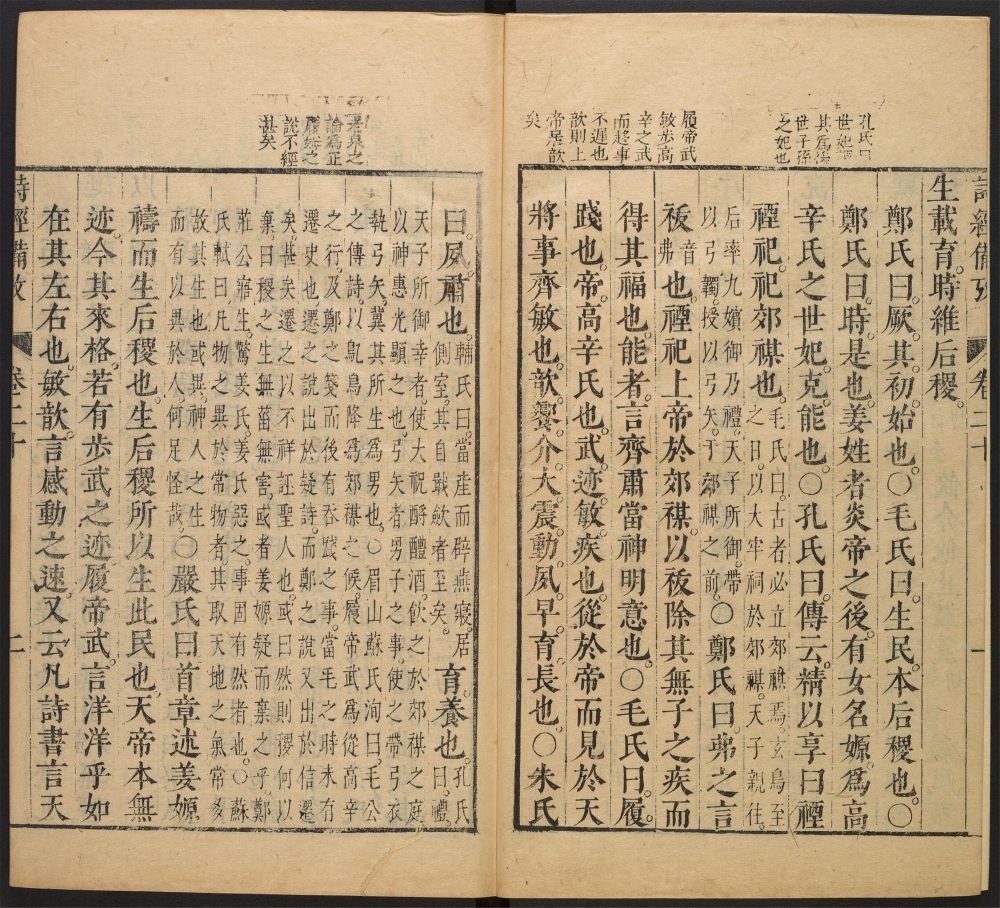 詩經備攷 卷二十 一
孔氏曰
世妃謂
其為後
世子孫
之妃也
履帝武
敏步高
辛之武
而趍事
不遲也
歆則上
帝居歆
矣
生載育。時維后稷。
鄭氏曰。厥。其。初。始也。○毛氏曰。生民。本后稷也。○
鄭氏曰。時。是也。姜姓者。炎帝之後。有女名嫄。為高
辛氏之世妃。克。能也。○孔氏曰。傳云。精以享曰禋
禋祀。祀郊禖也。毛氏曰。古者必立郊禖焉。玄鳥至之日。以大牢祠於郊禖。天子親往。
后率九嬪御。乃禮天子所御。帶以弓韣。授以弓矢。于郊禖之前。○鄭氏曰。弗之言
祓音弗也。禋祀上帝於郊禖。以祓除其無子之疾而
得其福也。能者。言齊肅當神明意也。○毛氏曰。履。
踐也。帝。高辛氏也。武。迹。敏。疾也。從於帝而見於天
將事齊敏也。歆。饗。介。大。震。動。夙。早。育。長也。○朱氏
老泉之
論為正
履跡之
說不經
甚矣
曰。夙。肅也。輔氏曰。當產而辟燕寢。居側室。其自戢歛者至矣。育。養也。孔氏曰。禮。
天子所御幸者。使大祝酹醴酒。飲之於郊禖之庭
以神惠光顯之也。弓矢者。男子之事。使之帶弓衣
執弓矢。冀其所生為男也。○眉山蘇氏洵曰。毛公
之傳詩。以鳥降為郊禖之候。履帝武為從高辛
之行。及鄭之箋。而後有吞踐之事。當毛之時。未有
遷史也。遷之說出於疑詩。而鄭之說又出於信遷
矣。甚矣遷之以不祥誣聖人也。或曰然則稷何以
棄。曰稷之生無菑無害。或者姜嫄疑而棄之乎。鄭
莊公寤生。驚姜氏。姜氏惡之。事固有然者也。○蘇
氏軾曰。凡物之異於常物者。其取天地之氣常多
故其生也或異。神人之生而有以異於人。何足怪哉。○嚴氏曰。首章述姜嫄
禱而生后稷也。生后稷。所以生此民也。天帝本無
迹。今其來格。若有步武之迹。履帝武。言洋洋乎如
在其左右也。敏歆。言感動之速。又云。凡詩書言天
詩經備攷 卷二十 二